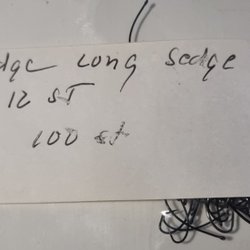 dge Long Sedge
12 ST
100 st